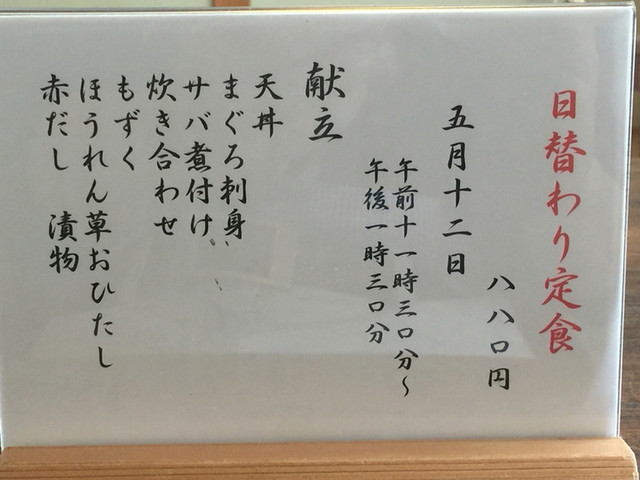 日替わり定食
八八〇円
五月十二日
午前十一時三〇分～
午後一時三〇分
献立
天丼
まぐろ刺身
サバ煮付け
炊き合わせ
もずく
ほうれん草おひたし
赤だし　漬物